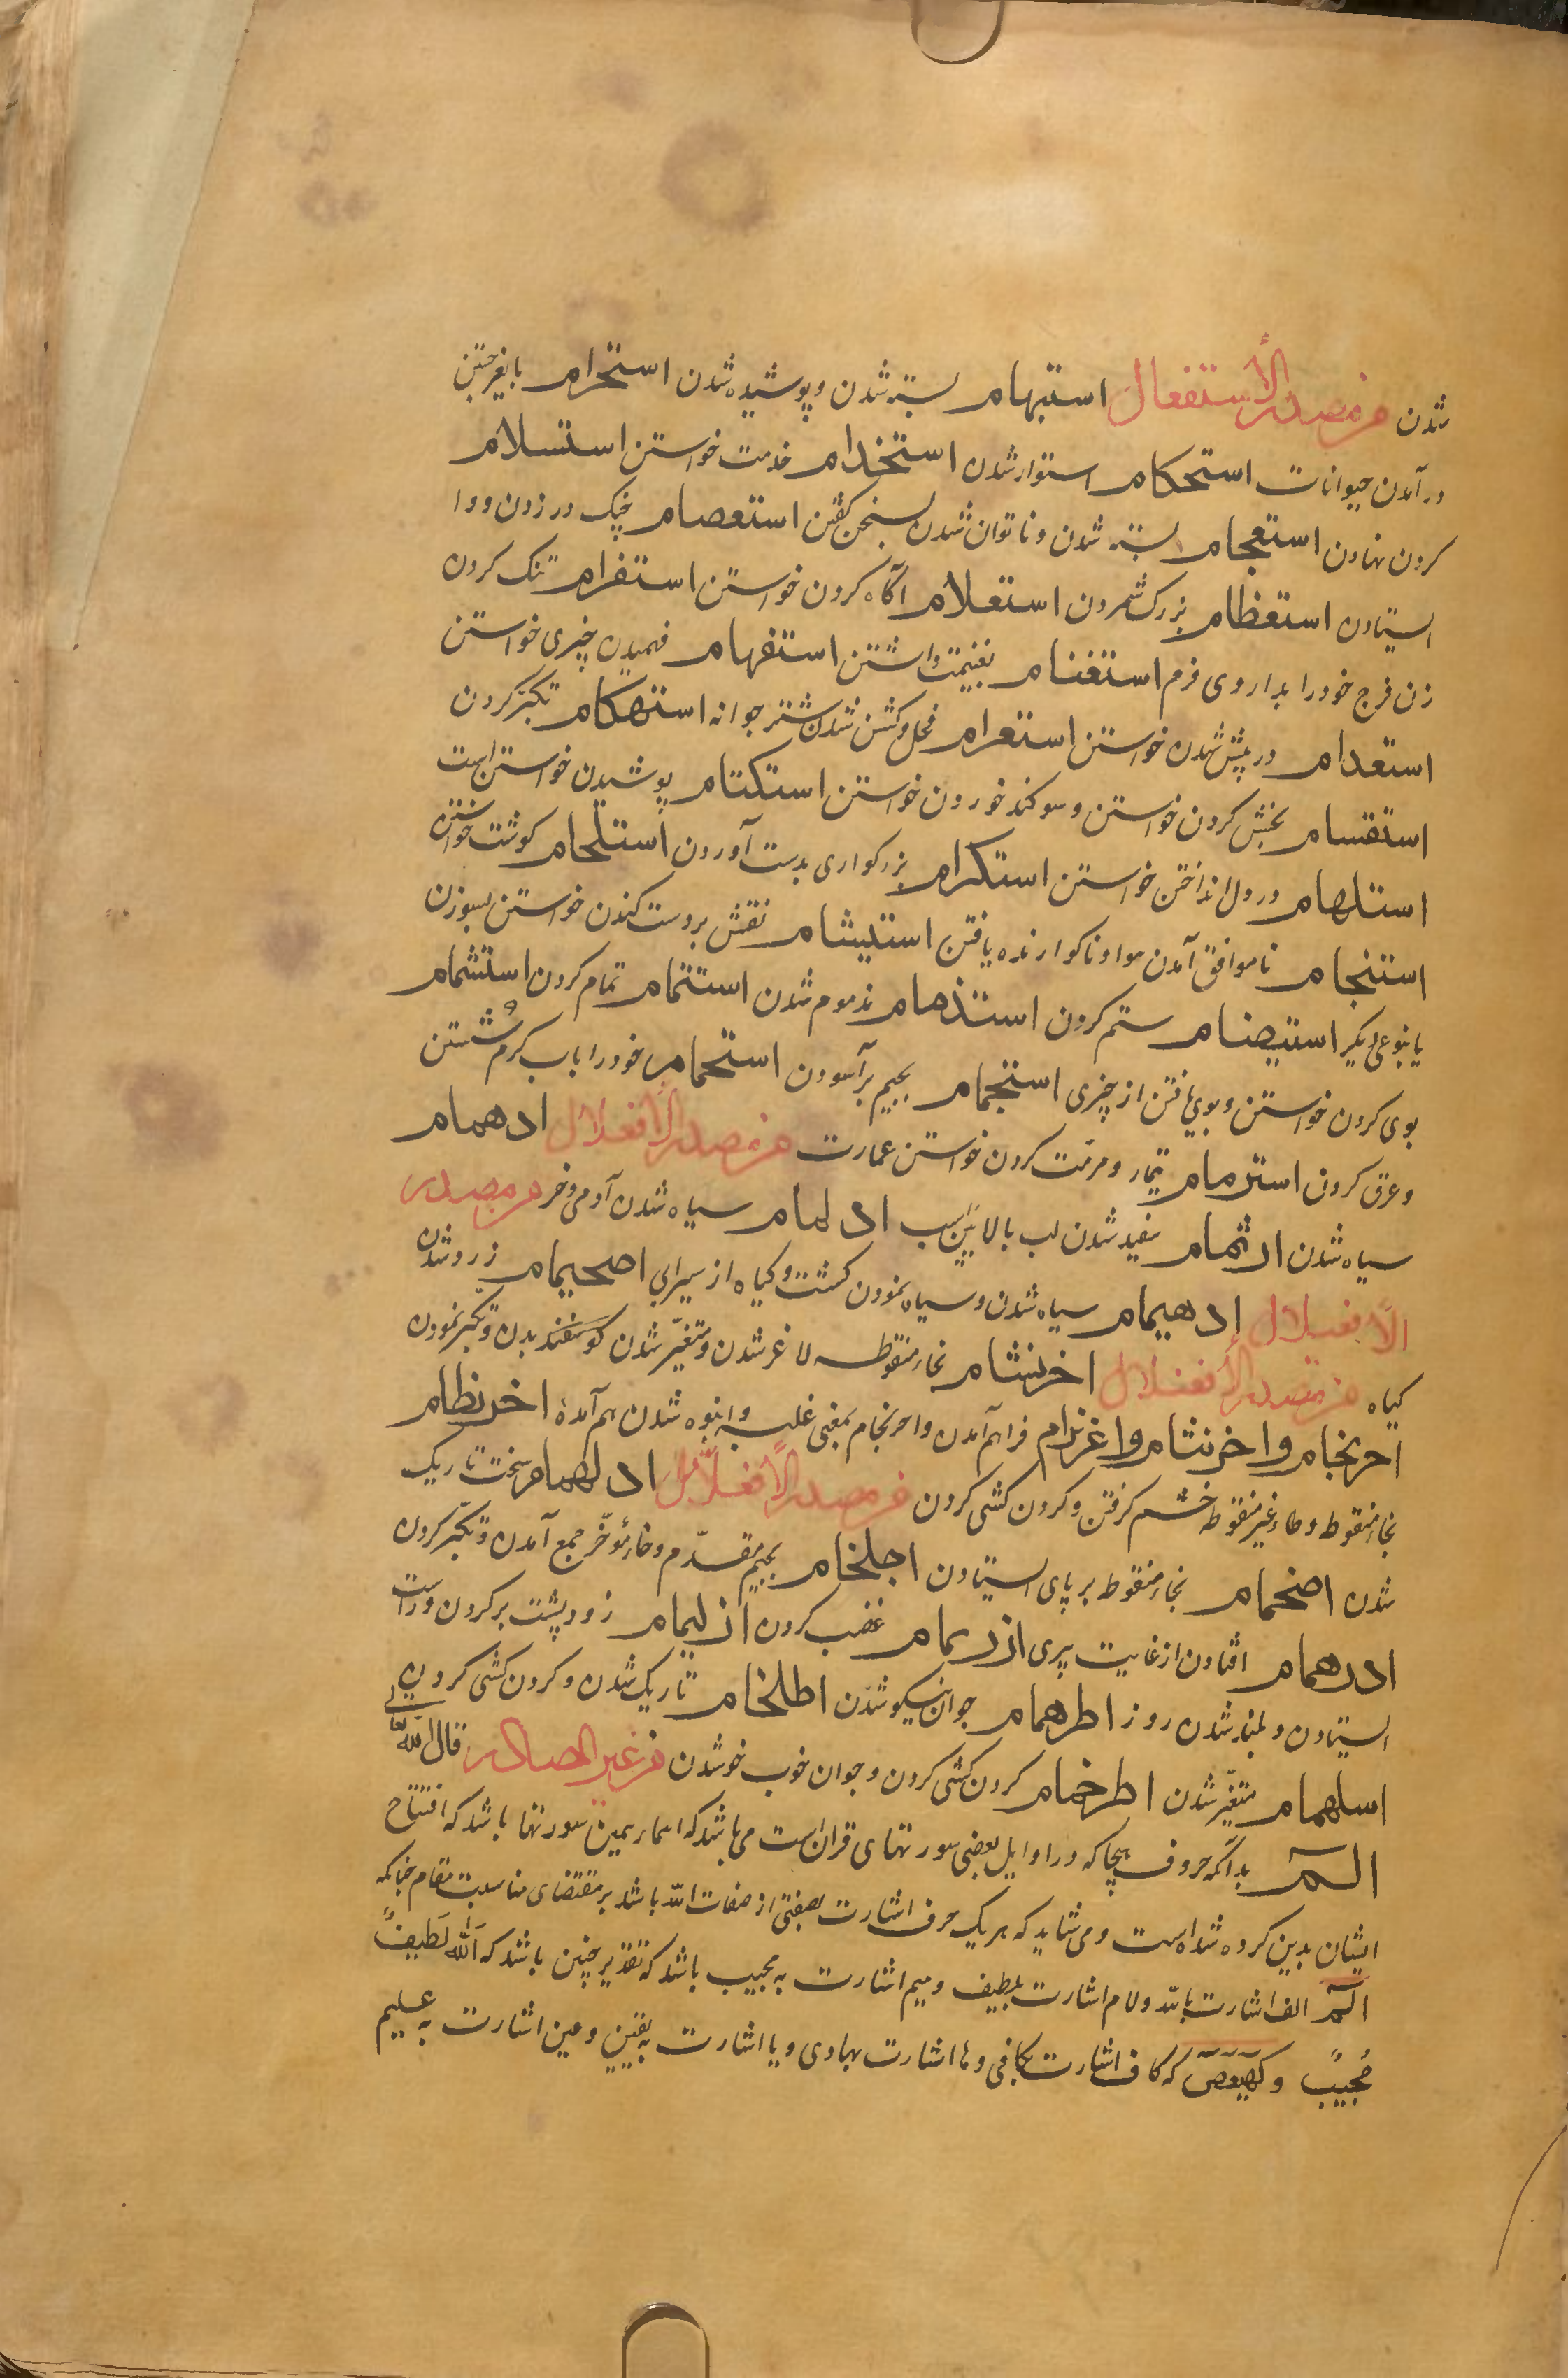 شدن من مصدر الأستفعال استبهام بسته شدن و پوشیده شدن استحرام بایغر جستن
در آمدن حیوانات استحکام استوار شدن استخدام خدمت خواستن استسلام
کردن نهادن استعجام بسته شدن و ناتوان شدن بسخن گفتن استعصام چنک در زدن و وا
ایستادن استعظام بزرک شمردن استعلام آگاه کردن خواستن استفرام تنک کردن
زن فرج خود را بداروی فرم استغنام بغنیمت داشتن استفهام فهمیدن چیزی خواستن
استعدام در پیش شدن خواستن استعرام فحل و کشن شدن شتر جوانه استهکام تکبّر کردن
استقسام بخش کردن خواستن و سوکند خوردن خواستن استکتام پوشیدن خواستن است
استلهام در دل انداختن خواستن استکرام بزرکواری بدست آوردن استلحام کوشت خواستن
استنجام ناموافق آمدن هوا و ناکوارنده یافتن استیشام نقش بر دست کندن خواستن بسوزن
یا بنوعی دیگر استیضام ستم کردن استذمام مذموم شدن استتمام تمام کردن استشمام
بوی کردن خواستن و بوی یافتن از چیزی استجمام بجیم بر آسودن استحمام خود را باب کرم شستن
و عرق کردن استرمام تیمار و مرمّت کردن خواستن عمارت من مصدر الأفعلال ادهمام
سیاه شدن ارثمام سفید شدن لب بالایین اسب ادلمام سیاه شدن آدمی و خر من مصدر
الأفعیلال ادهیمام سیاه شدن و سیاه نمودن کشت و کیاه از سیرابی اصحیمام زرد شدن
کیاه من مصدر الأفعنلال اخرنشام بخاء منقوطه لاغر شدن و متغیّر شدن کوسفند بدن و تکبّر نمودن
احرنجام و اخرنثام و اغرنزام فراهم آمدن و احرنجام بمعنی غلبه و انبوه شدن هم آمده اخرنطام
بخاء منقوط و طاء غیر منقوط خشم کرفتن و کردن کشی کردن من مصدر الأفعلّال ادلهمام سخت تاریک
شدن اضخمام بخاء منقوط بر پای ایستادن اجلخمام بجیم مقدّم و خاء مؤخّر جمع آمدن و تکبّر کردن
ادرهمام افتادن از غایت پیری ازرمام غضب کردن ازلیمام زود پشت بر کردن و راست
ایستادن و بلند شدن روز اطرهمام جوان نیکو شدن اطلخمام تاریک شدن و کردن کشی کردن
اسلهمام متغیّر شدن اطرخمام کردن کشی کردن و جوان خوب خوشدن من غیر المصادر قال الله تعالی
الم بدانکه حروف هجا که در اوایل بعضی سورتهای قران است می باشد که اسماء همین سورتها باشد که افتتاح
ایشان بدین کرده شده است و می شاید که هر یک حرف اشارت بصفتی از صفات الله باشد بر مقتضای مناسبت مقام چنانکه
الم الف اشارت بالله و لام اشارت بلطیف و میم اشارت به مجیب باشد که تقدیر چنین باشد که اَللهُ لَطیفٌ
مُجیبٌ و کهیعص که کاف اشارت بکافی و ها اشارت بهادی و یا اشارت به یقین و عین اشارت به علیم